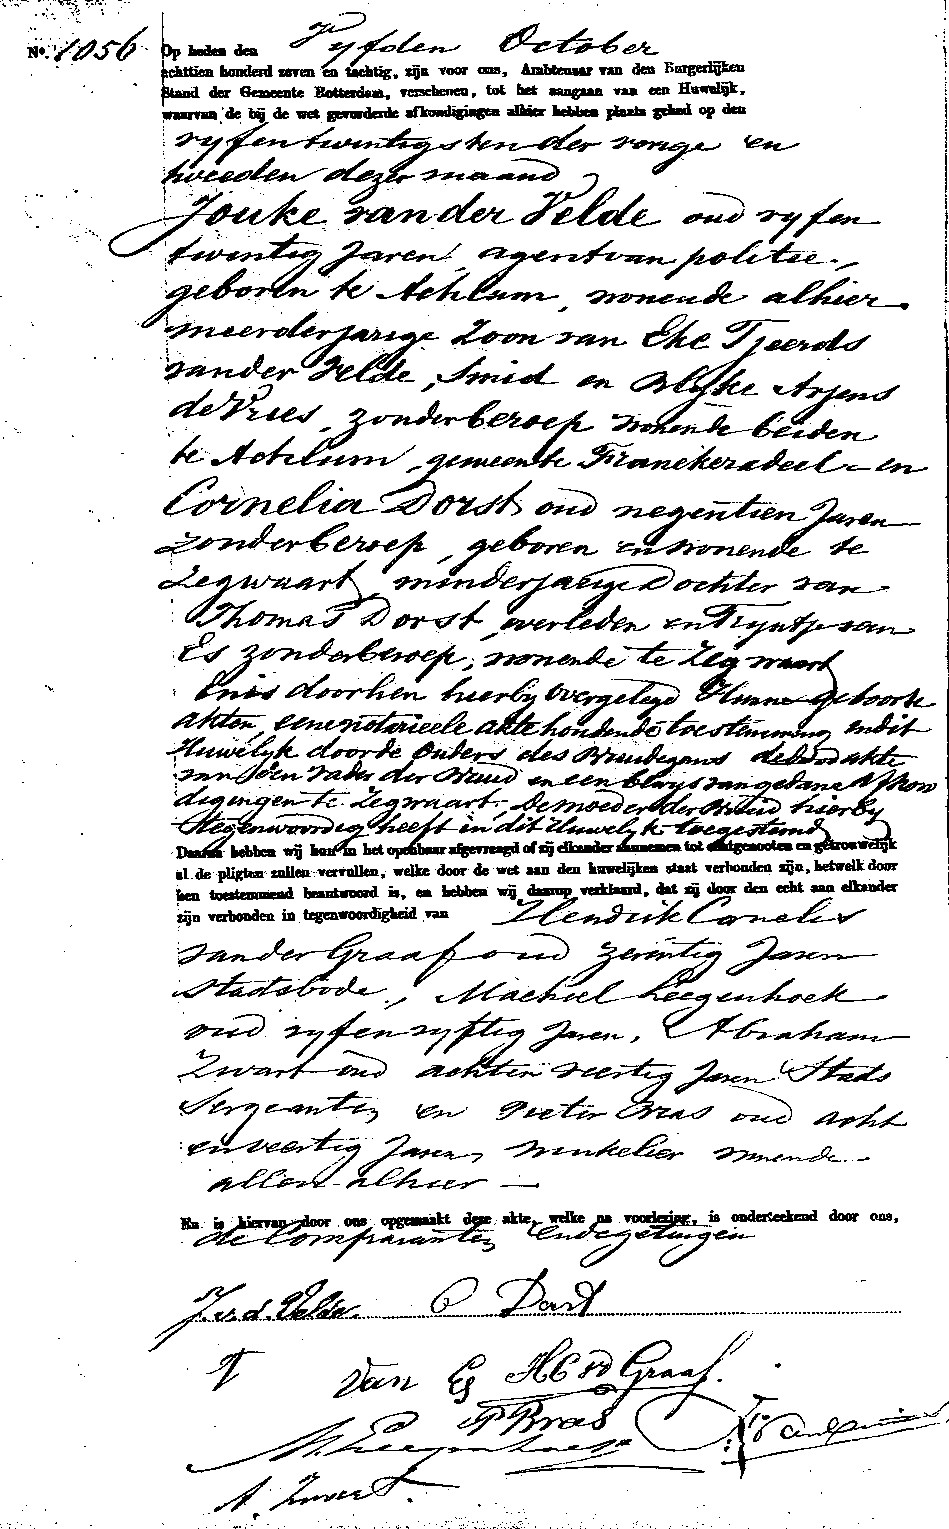 No. 1056 Op heden den Vyfden October
achttien honderd zeven en tachtig, zijn voor ons, Ambtenaar van den Burgerlijken
Stand der Gemeente Rotterdam, verschenen, tot het aangaan van een Huwelijk,
waarvan de bij de wet gevorderde afkondigingen alhier hebben plaats gehad op den
vyfentwintigsten der vorige en
tweeden dezer maand
Jouke van der Velde oud vyfen
twintig Jaren, agent van politie,
geboren te Achlum, wonende alhier
meerderjarige Zoon van Eke Tjeerds
van der Velde, Smid en Blyke Arjens
de Vries, zonder beroep wonende beiden
te Achlum, gemeente Franekeradeel - en
Cornelia Dorst oud negentien Jaren
zonder beroep, geboren en wonende te
Zegwaart, minderjarige Dochter van
Thomas Dorst, overleden en Tryntje van
Es zonder beroep, wonende te Zegwaart
En is door hen hierby overgelegd Hunne geboorte
akten, eene notarieele akte houdende toestemming in dit
Huwelyk door de Ouders des Bruidegoms de dood akte
van den vader der Bruid en een bewys van gedane Afkon
digingen te Zegwaart; De moeder der Bruid hierby
tegenwoordig heeft in dit Huwelyk toegestemd
Daarna hebben wij hun in het openbaar afgevraagd of zij elkander aannemen tot echtgenooten en getrouwelijk
al de pligten zullen vervullen, welke door de wet aan den huwelijken staat verbonden zijn, hetwelk door
hen toestemmend beantwoord is, en hebben wij daarop verklaard, dat zij door den echt aan elkander
zijn verbonden in tegenwoordigheid van Hendrik Cornelis
van der Graaf oud zeventig Jaren
stadsbode, Machiel Leegenhoek
oud vyfenvyftig Jaren, Abraham
Zwart oud achten veertig Jaren Stads
Sergeanten en Pieter Bras oud acht
en veertig Jaren, winkelier wonende
allen alhier —
En is hiervan door ons opgemaakt deze akte, welke na voorlezing, is onderteekend door ons,
de Comparanten en de getuigen
J. v. d. Velde. C Dorst
T van Es H C vd Graaf.
P Bras
M. Leegenhoek
A. Zwart.